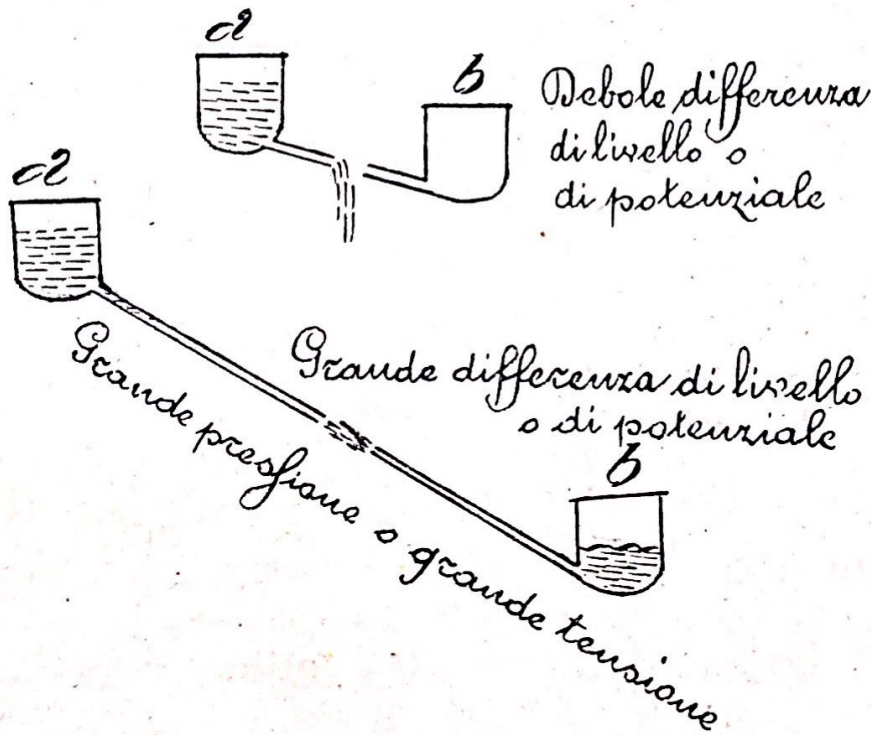 a
b
Debole differenza
di livello o
di potenziale
a
Grande differenza di livello
o di potenziale
b
Grande pressione o grande tensione